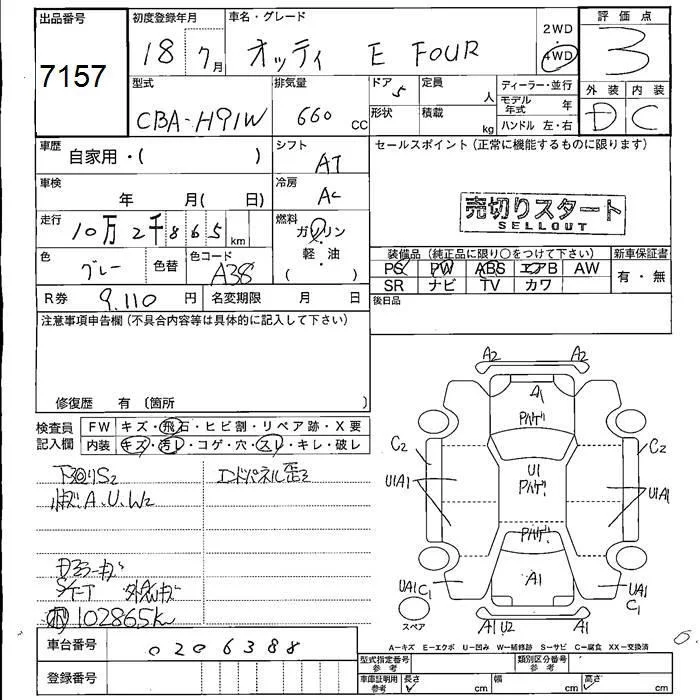 出品番号
7157
初度登録年月
18 7月
車名・グレード
オッティ E FOUR
2WD
4WD
評価点
3
型式
CBA-H91W
排気量
660 CC
ドア 5
形状
定員 人
積載 kg
ディーラー・並行
モデル年式 年
ハンドル 左・右
外装 内装
D C
車歴
自家用・( )
シフト
AT
セールスポイント(正常に機能するものに限ります)
車検
年 月( 日)
冷房
AC
売切りスタート
SELLOUT
走行
10万2千865km
燃料
ガソリン
軽・油
( )
色
グレー
色替
色コード
A38
装備品(純正品に限り○をつけて下さい)
新車保証書
PS PW ABS エアB AW
SR ナビ TV カワ
有・無
R券 9,110円
名変期限 月 日
後日品
注意事項申告欄(不具合内容等は具体的に記入して下さい)
修復歴 有〔箇所
検査員記入欄
FW キズ・飛石・ヒビ割・リペア跡・X要
内装 キズ・汚レ・コゲ・穴・スレ・キレ・破レ
下廻りS2
エンドパネル歪ミ
A.U.W2
102865k
A2 A2
A1
Pハゲ
C2 C2
U1
Pハゲ
U1A1 U1A1
Pハゲ
A1
UA1 C1
UA1
C1
スペア
A1 U2 A1
A-キズ E-エクボ U-凹み W-補修跡 S-サビ C-腐食 XX-交換済
車台番号
0206388
登録番号
型式指定番号 参考
類別区分番号 参考
車庫証明用 参考
長さ cm 幅 cm 高さ cm